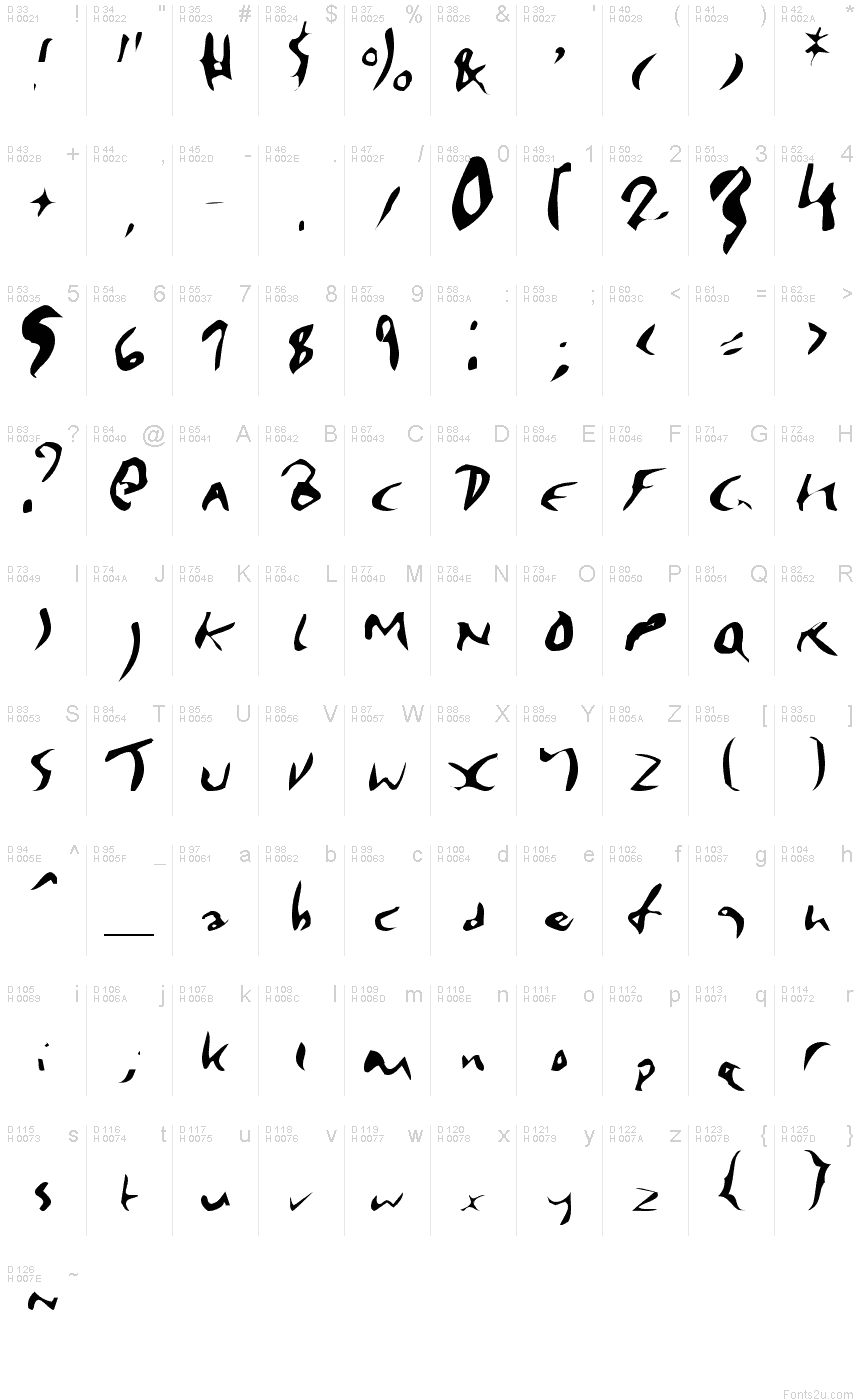 D 33 H 0021 ! D 34 H 0022 " D 35 H 0023 # D 36 H 0024 $ D 37 H 0025 % D 38 H 0026 & D 39 H 0027 ' D 40 H 0028 ( D 41 H 0029 ) D 42 H 002A *
! " # $ % & ' ( ) *
D 43 H 002B + D 44 H 002C , D 45 H 002D - D 46 H 002E . D 47 H 002F / D 48 H 0030 0 D 49 H 0031 1 D 50 H 0032 2 D 51 H 0033 3 D 52 H 0034 4
+ , - . / 0 1 2 3 4
D 53 H 0035 5 D 54 H 0036 6 D 55 H 0037 7 D 56 H 0038 8 D 57 H 0039 9 D 58 H 003A : D 59 H 003B ; D 60 H 003C < D 61 H 003D = D 62 H 003E >
5 6 7 8 9 : ; < = >
D 63 H 003F ? D 64 H 0040 @ D 65 H 0041 A D 66 H 0042 B D 67 H 0043 C D 68 H 0044 D D 69 H 0045 E D 70 H 0046 F D 71 H 0047 G D 72 H 0048 H
? @ A B C D E F G H
D 73 H 0049 I D 74 H 004A J D 75 H 004B K D 76 H 004C L D 77 H 004D M D 78 H 004E N D 79 H 004F O D 80 H 0050 P D 81 H 0051 Q D 82 H 0052 R
I J K L M N O P Q R
D 83 H 0053 S D 84 H 0054 T D 85 H 0055 U D 86 H 0056 V D 87 H 0057 W D 88 H 0058 X D 89 H 0059 Y D 90 H 005A Z D 91 H 005B [ D 93 H 005D ]
S T U V W X Y Z [ ]
D 94 H 005E ^ D 95 H 005F _ D 97 H 0061 a D 98 H 0062 b D 99 H 0063 c D 100 H 0064 d D 101 H 0065 e D 102 H 0066 f D 103 H 0067 g D 104 H 0068 h
^ _ a b c d e f g h
D 105 H 0069 i D 106 H 006A j D 107 H 006B k D 108 H 006C l D 109 H 006D m D 110 H 006E n D 111 H 006F o D 112 H 0070 p D 113 H 0071 q D 114 H 0072 r
i j k l m n o p q r
D 115 H 0073 s D 116 H 0074 t D 117 H 0075 u D 118 H 0076 v D 119 H 0077 w D 120 H 0078 x D 121 H 0079 y D 122 H 007A z D 123 H 007B { D 125 H 007D }
s t u v w x y z { }
D 126 H 007E ~
~
Fonts2u.com